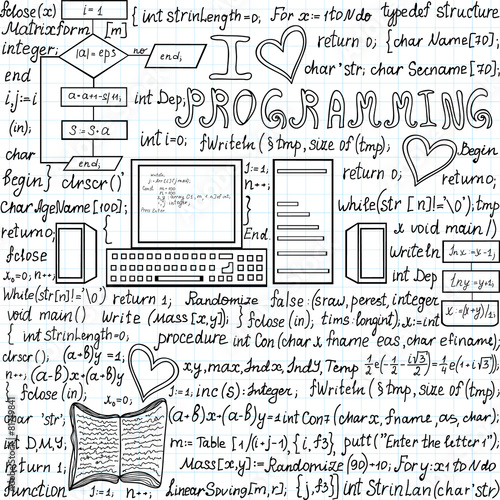 fclose(x) i = 1 { int strinLength=0; For x:= 1 to N do typedef structure
Matrixform [m]
integer; |a|=eps no end; I return 0; { char Name[70];
end char *str; char Secname [70];
i,j:=i a=a+1-s/11; int Dep; PROGRAMMING
(in); S:=S+a int i=0; fWriteln ( § tmp, size of (tmp);
char end; Begin
begin } clrscr()' return 0; return 0;
Char AgeName [100]; write, i:=1; n++; while (str [n]!='\0'); tmp
return 0; { } x void main() /
fclose End. Writeln ln x:=y-1;
x₀=0; n++; int Dep ln y:=y+1;
While (str[n]!='\0') return 1; Randomize false (sraw, perest, integer x:=(x+y)/1;
void main() Write (Mass[x,y]; } fclose (in); tims: longint); x:=int
{ int StrinLength=0; procedure int Con (char x, fname eas, char efiname);
clrscr(); (a+b)y =1;
n++; (a-b)x+(a+b)y xy, max, IndX, IndY, Temp 1/2 e(-1/2 - i√3/2) = 1/4 e(1+i√3);
} fclose (in); i:=1; inc (s): Integer; fWriteln ( § tmp, size of (tmp);
x₀=0;
char *str; (a+b)x+(a-b)y =1 int Con7 (char x, fname as, char);
int D,M,Y; m:= Table [1/(i+j-1), {i, f3}, putt ("Enter the letter 1");
return 1; Mass[x,y]:= Randomize (90)+10; For y:=1 to N do
function i:=1; n++; LinearSpving[m,r]; {j, f3} int StrinLan (char str)